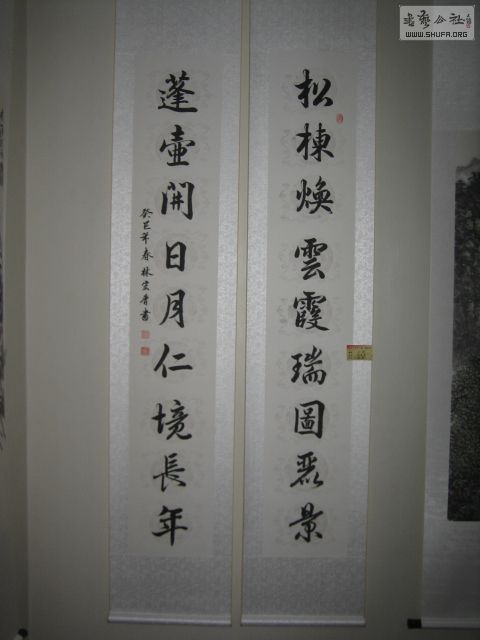 書藝公社
WWW.SHUFA.ORG
松棟煥雲霞瑞圖麗景
蓬壺開日月仁境長年
癸巳年春林宏書